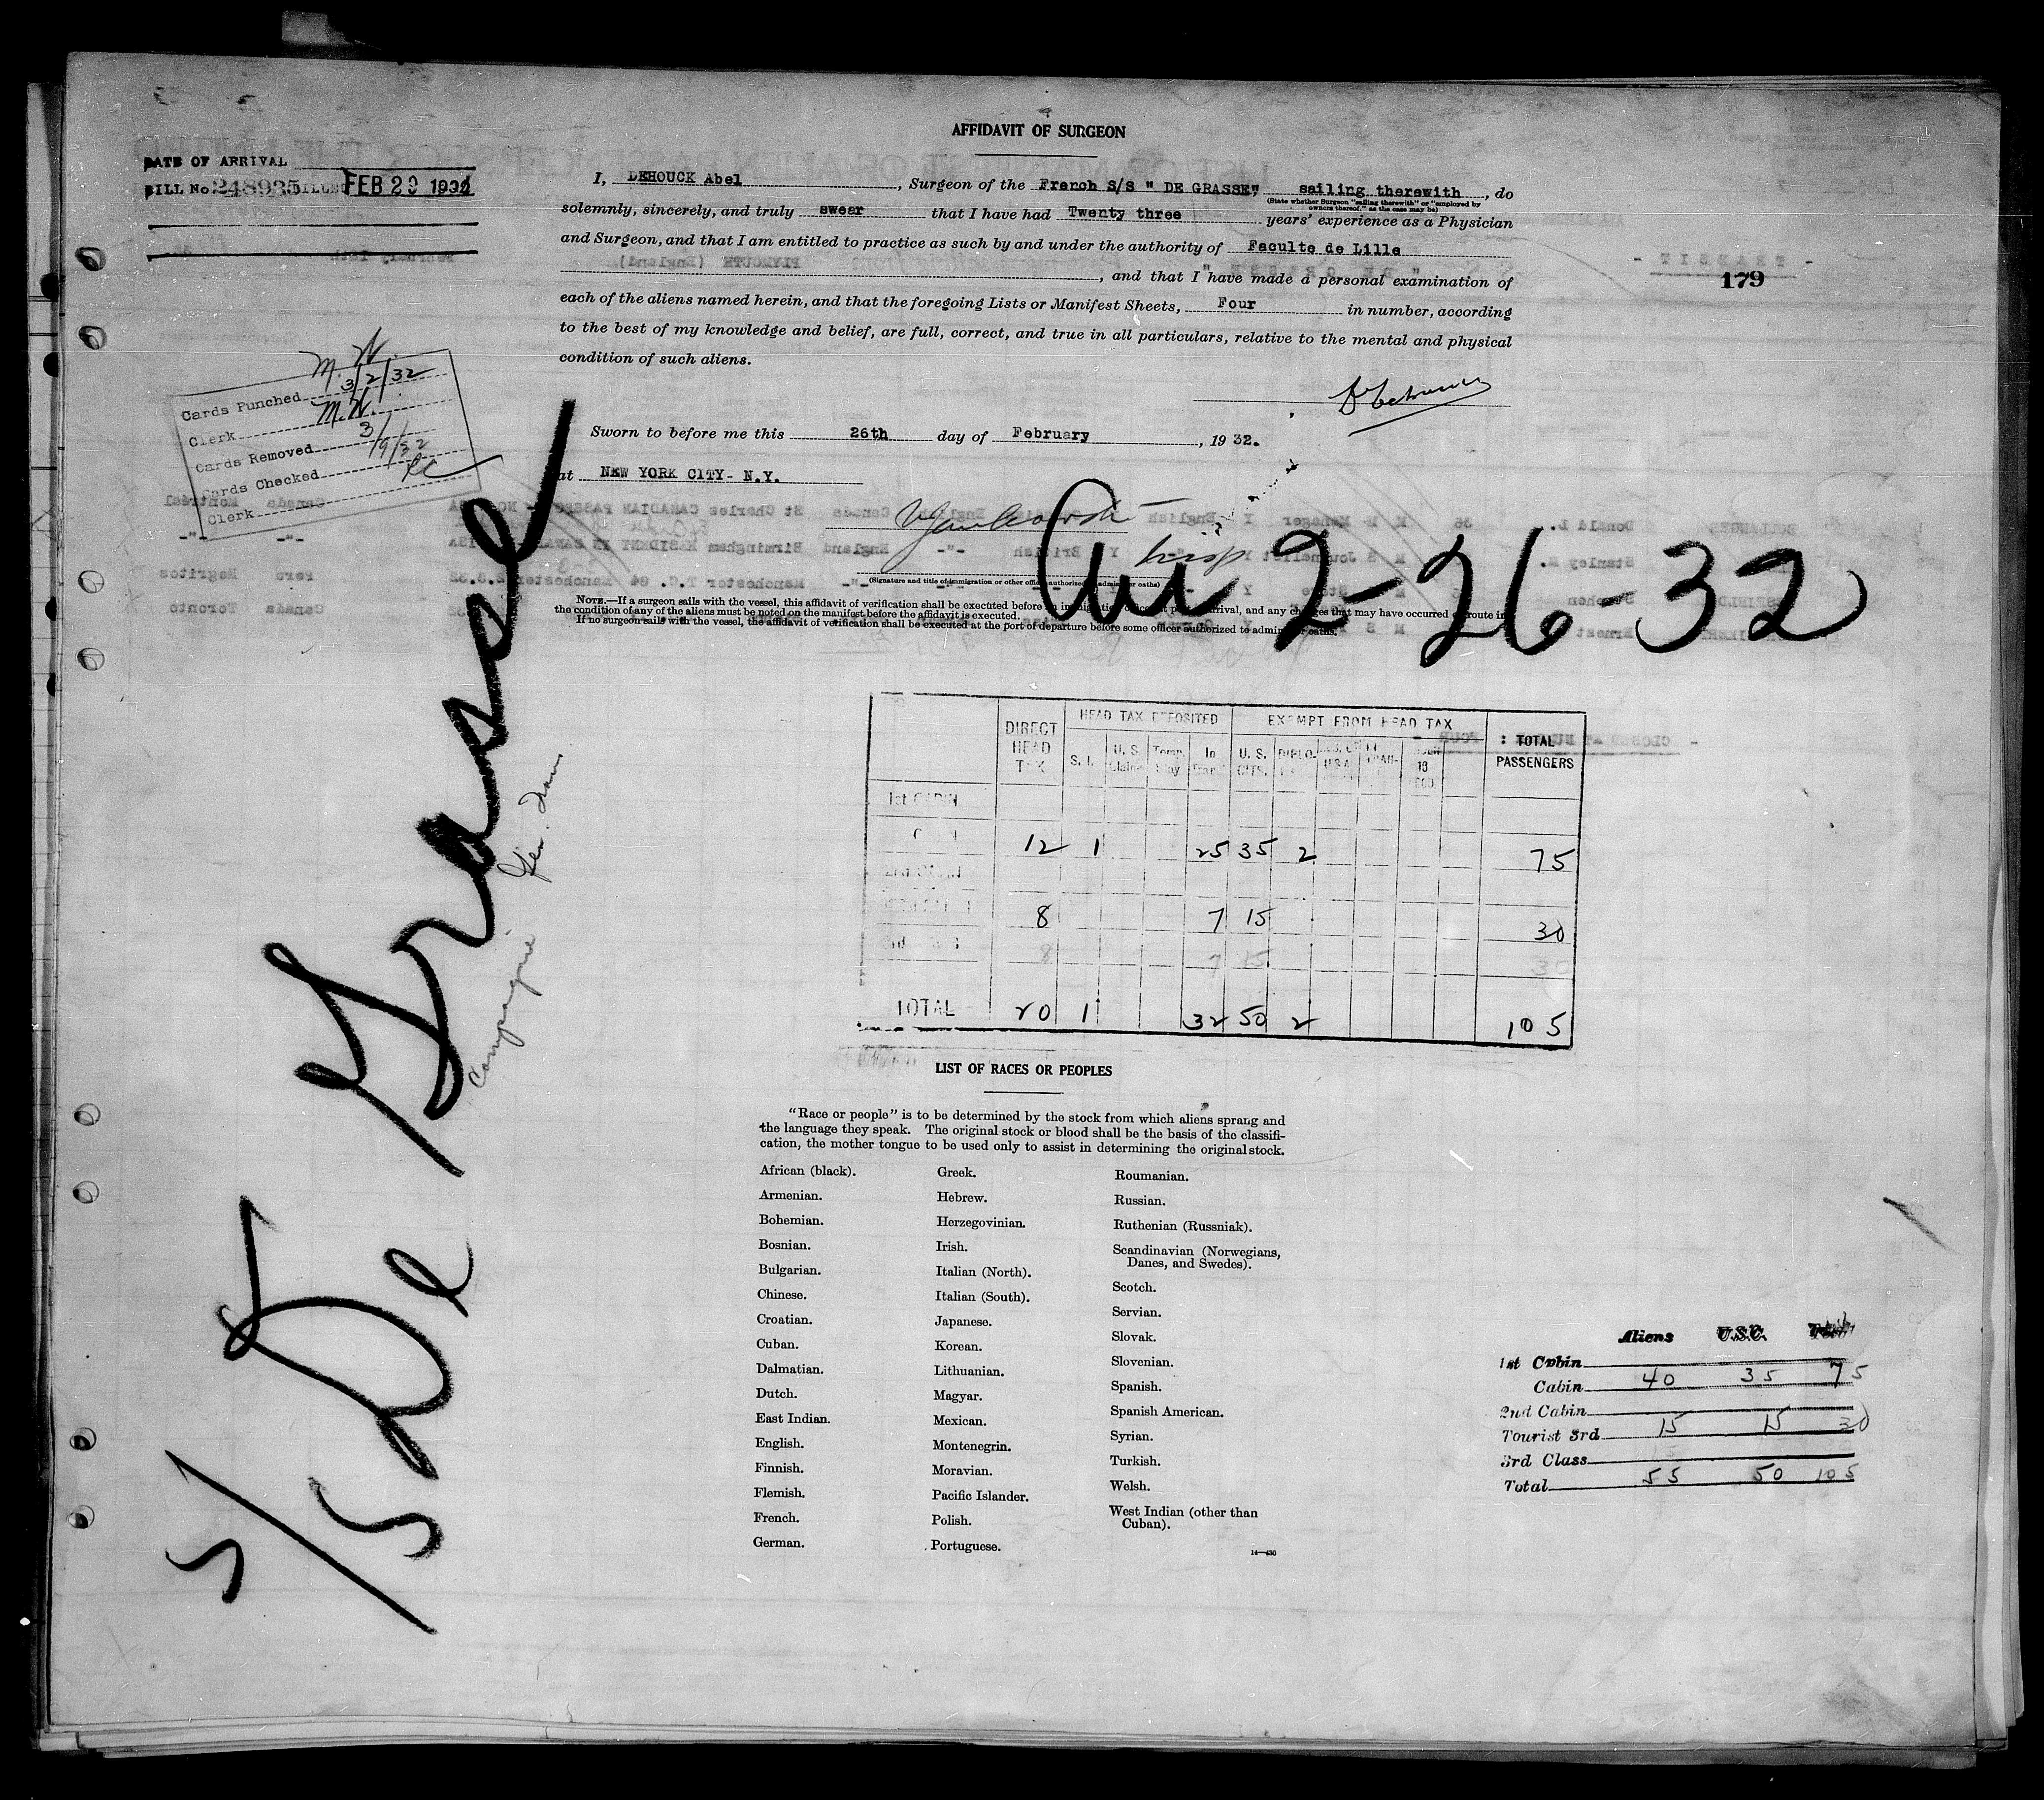 AFFIDAVIT OF SURGEON
DATE OF ARRIVAL
BILL No. 248935 BILLED FEB 29 1932
I, DEHOUCK Abel, Surgeon of the French S/S " DE GRASSE", sailing therewith, do
(State whether Surgeon "sailing therewith" or "employed by
owners thereof," as the case may be)
solemnly, sincerely, and truly swear that I have had Twenty three years' experience as a Physician
and Surgeon, and that I am entitled to practice as such by and under the authority of Faculte de Lille
, and that I have made a personal examination of
each of the aliens named herein, and that the foregoing Lists or Manifest Sheets, Four in number, according
to the best of my knowledge and belief, are full, correct, and true in all particulars, relative to the mental and physical
condition of such aliens.
179
Cards Punched M.W. 3/2/32
Clerk M.W.
Cards Removed 3/9/32
Cards Checked
Clerk
Sworn to before me this 26th day of February, 1932.
at NEW YORK CITY- N.Y.
Insp
(Signature and title of immigration or other officer authorized to administer oaths)
NOTE.—If a surgeon sails with the vessel, this affidavit of verification shall be executed before an immigration officer at port of arrival, and any changes that may have occurred en route in
the condition of any of the aliens must be noted on the manifest before the affidavit is executed.
If no surgeon sails with the vessel, the affidavit of verification shall be executed at the port of departure before some officer authorized to administer oaths.
Arr 2-26-32
S/S De Grasse
Compagnie Gen. Trans.
DIRECT HEAD TAX HEAD TAX DEPOSITED EXEMPT FROM HEAD TAX TOTAL PASSENGERS
S. I. U. S. Claim Temp. Stay In Trans. U. S. CITS. DIPLO.
1st CABIN
12 1 25 35 2 75
8 7 15 30
8 7 15 30
TOTAL 20 1 32 50 2 105
LIST OF RACES OR PEOPLES
"Race or people" is to be determined by the stock from which aliens sprang and
the language they speak. The original stock or blood shall be the basis of the classifi-
cation, the mother tongue to be used only to assist in determining the original stock.
African (black).
Armenian.
Bohemian.
Bosnian.
Bulgarian.
Chinese.
Croatian.
Cuban.
Dalmatian.
Dutch.
East Indian.
English.
Finnish.
Flemish.
French.
German.
Greek.
Hebrew.
Herzegovinian.
Irish.
Italian (North).
Italian (South).
Japanese.
Korean.
Lithuanian.
Magyar.
Mexican.
Montenegrin.
Moravian.
Pacific Islander.
Polish.
Portuguese.
Roumanian.
Russian.
Ruthenian (Russniak).
Scandinavian (Norwegians,
Danes, and Swedes).
Scotch.
Servian.
Slovak.
Slovenian.
Spanish.
Spanish American.
Syrian.
Turkish.
Welsh.
West Indian (other than
Cuban).
14—430
Aliens U.S.C. Total
1st Cabin
Cabin 40 35 75
2nd Cabin
Tourist 3rd 15 15 30
3rd Class
Total 55 50 105